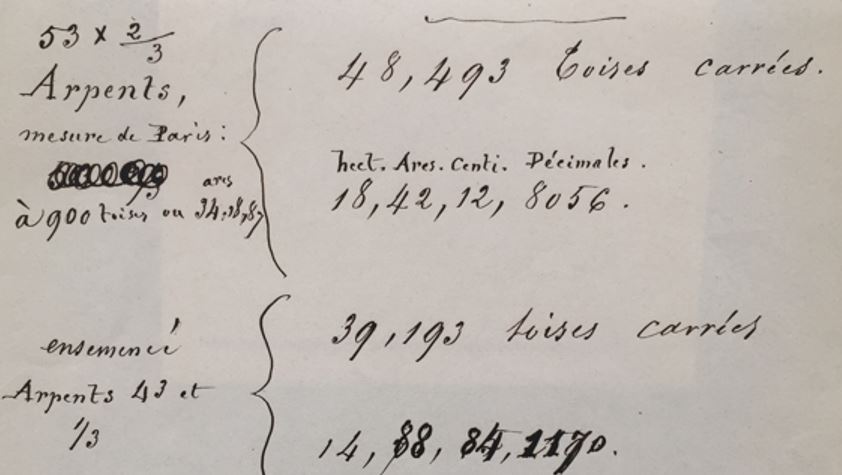 53 × 2/3
Arpents,
mesure de Paris:
ares
à 900 toises ou 34,18,87
48,493 Toises carrées.
hect. Ares. Centi. Décimales.
18,42,12, 8056.
ensemencé
Arpents 43 et
1/3
39,193 toises carrées
14, 88, 84, 1170.